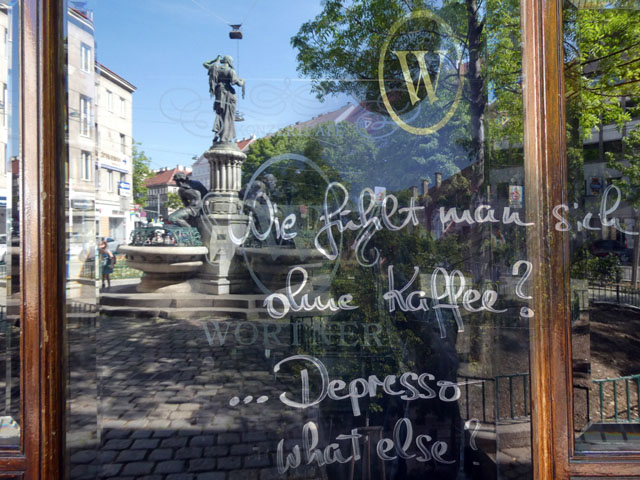 W
Wie fühlt man sich
ohne Kaffee?
WORTNER
... Depresso
what else?